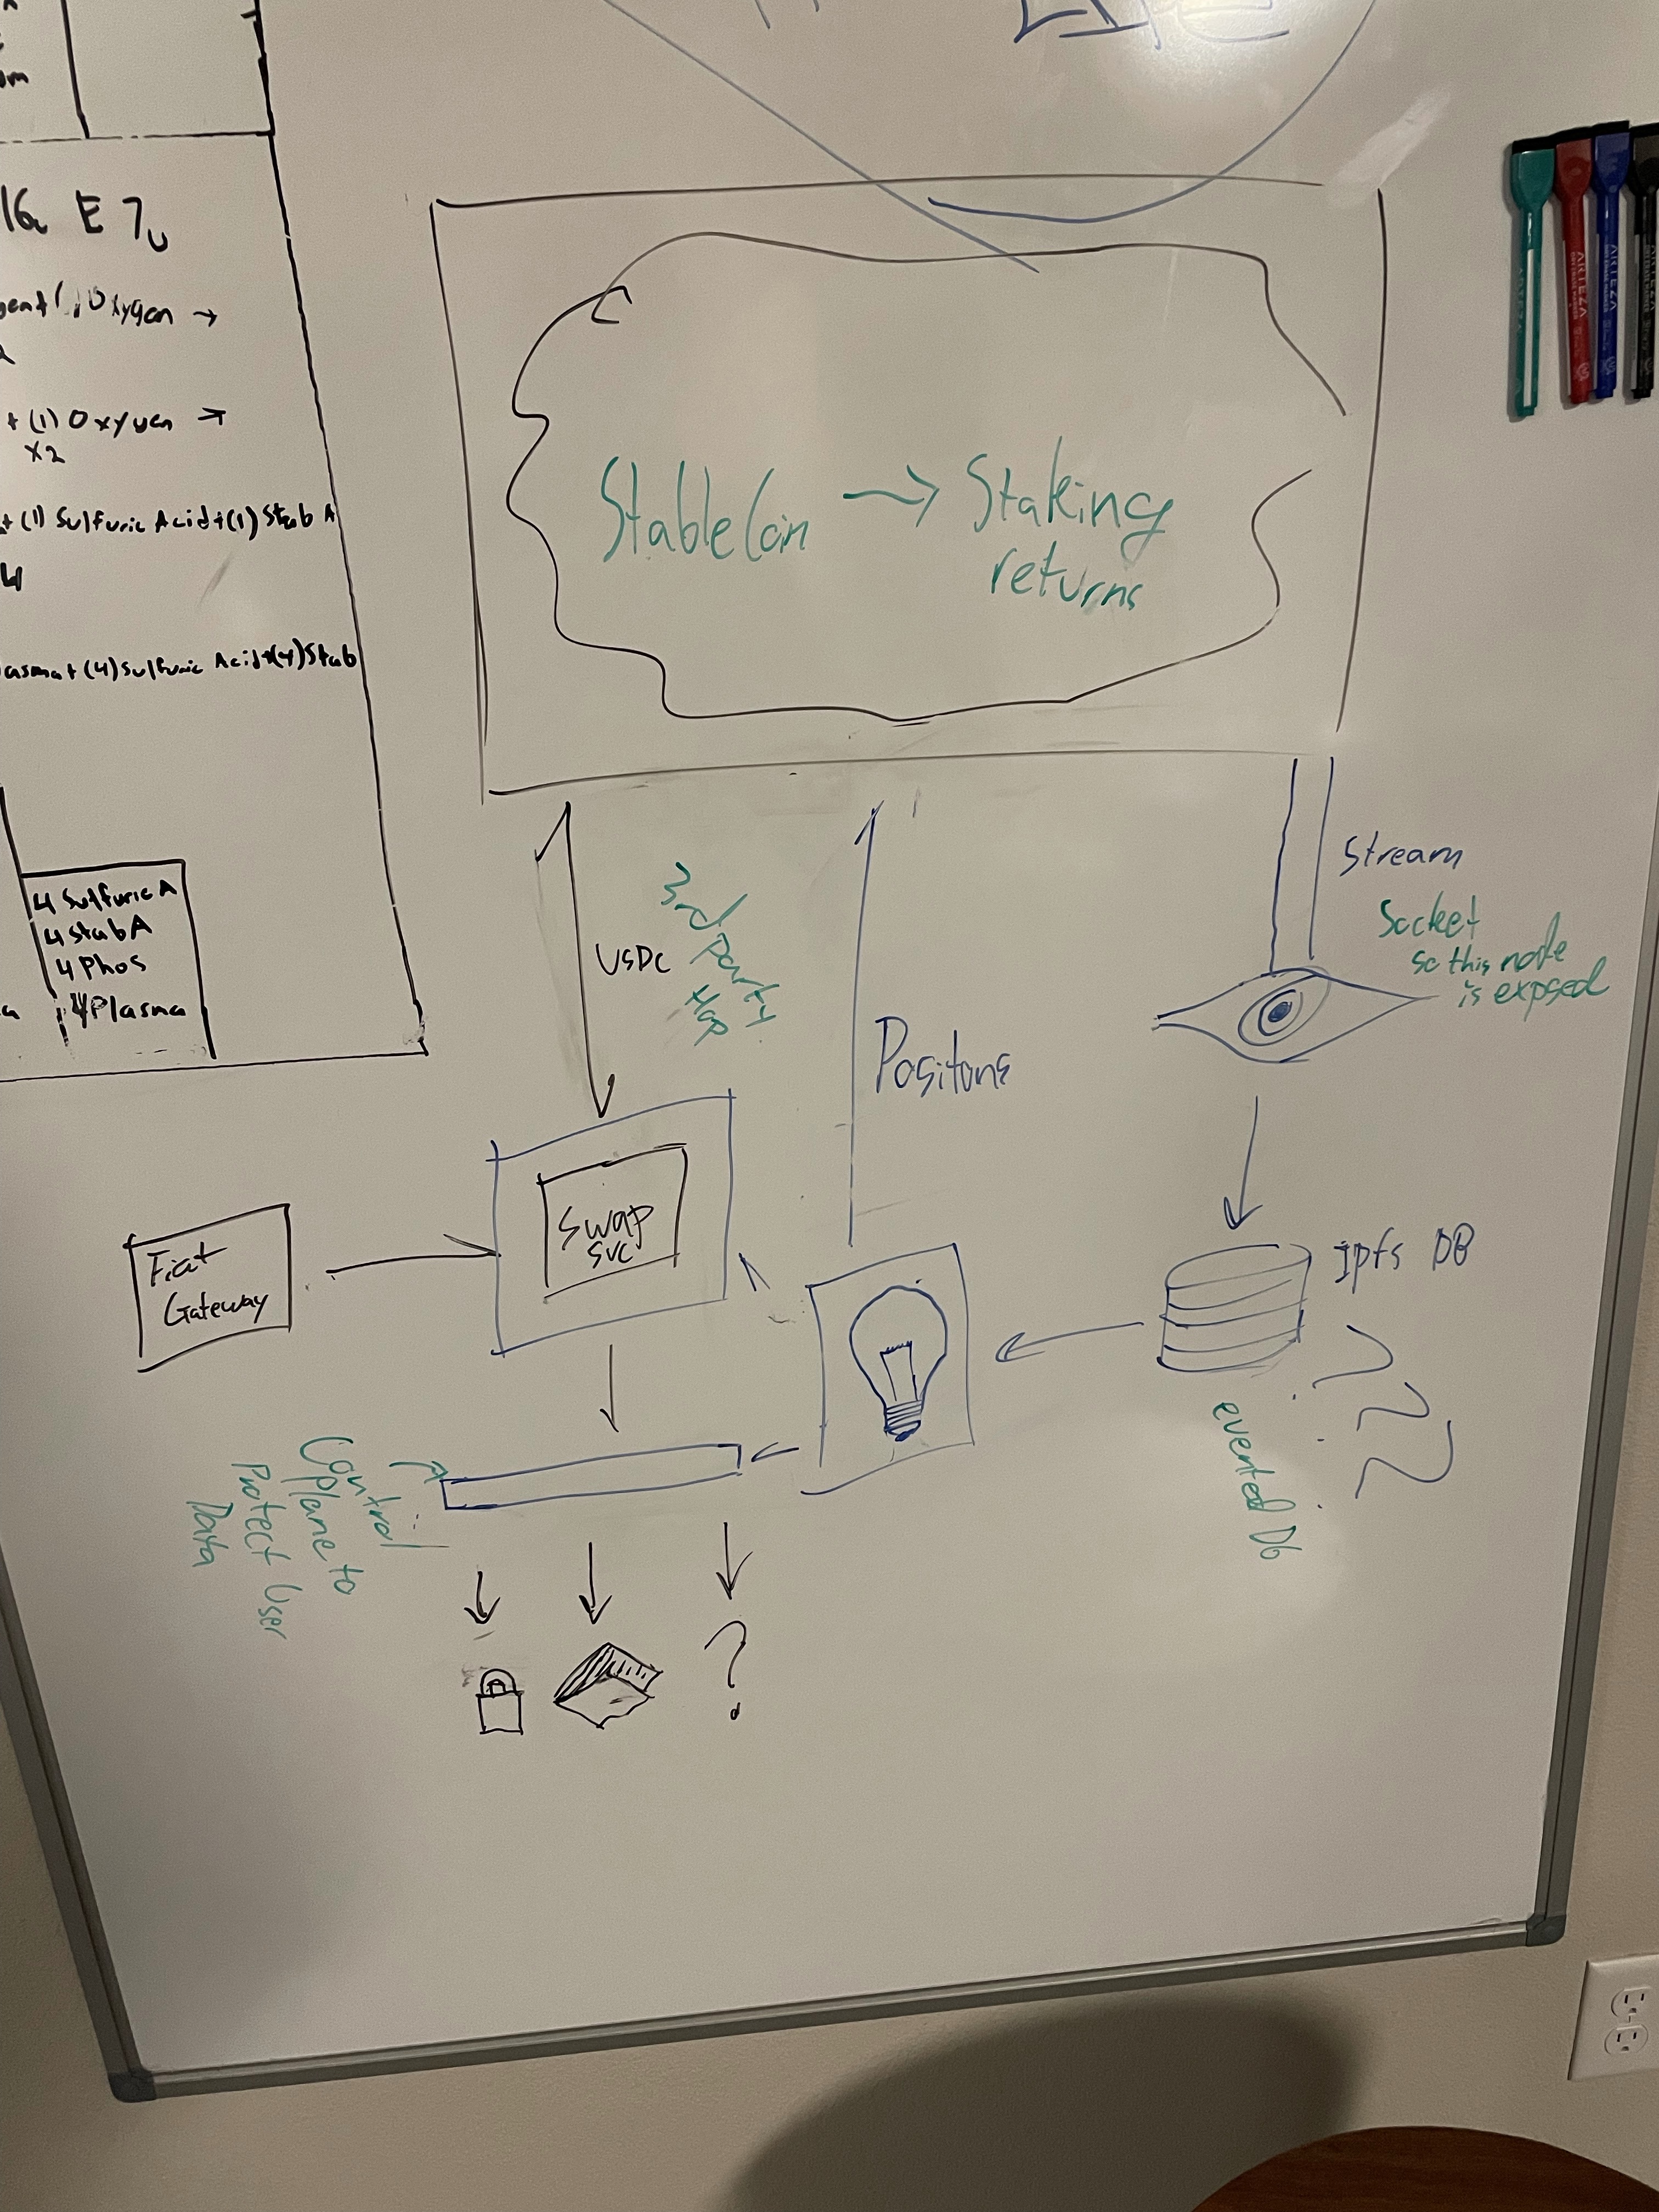 om
E
Oxygen →
+ (1) Oxyuen →
x2
+ (1) Sulfuric Acid + (1) Stab A
4
asma + (4) Sulfuric Acid + (4) Stab
4 Sulfuric A
4 Stab A
4 Phos
4 Plasma
a
StableCoin → Staking
returns
USDC
3rd Party
Hop
Positons
Stream
Socket
so this node
is expsed
Fiat
Gateway
Swap
svc
Ipfs DB
???
evented Db
Control
Plane to
Protect User
Data
?
ARTEZA
ARTEZA
ARTEZA